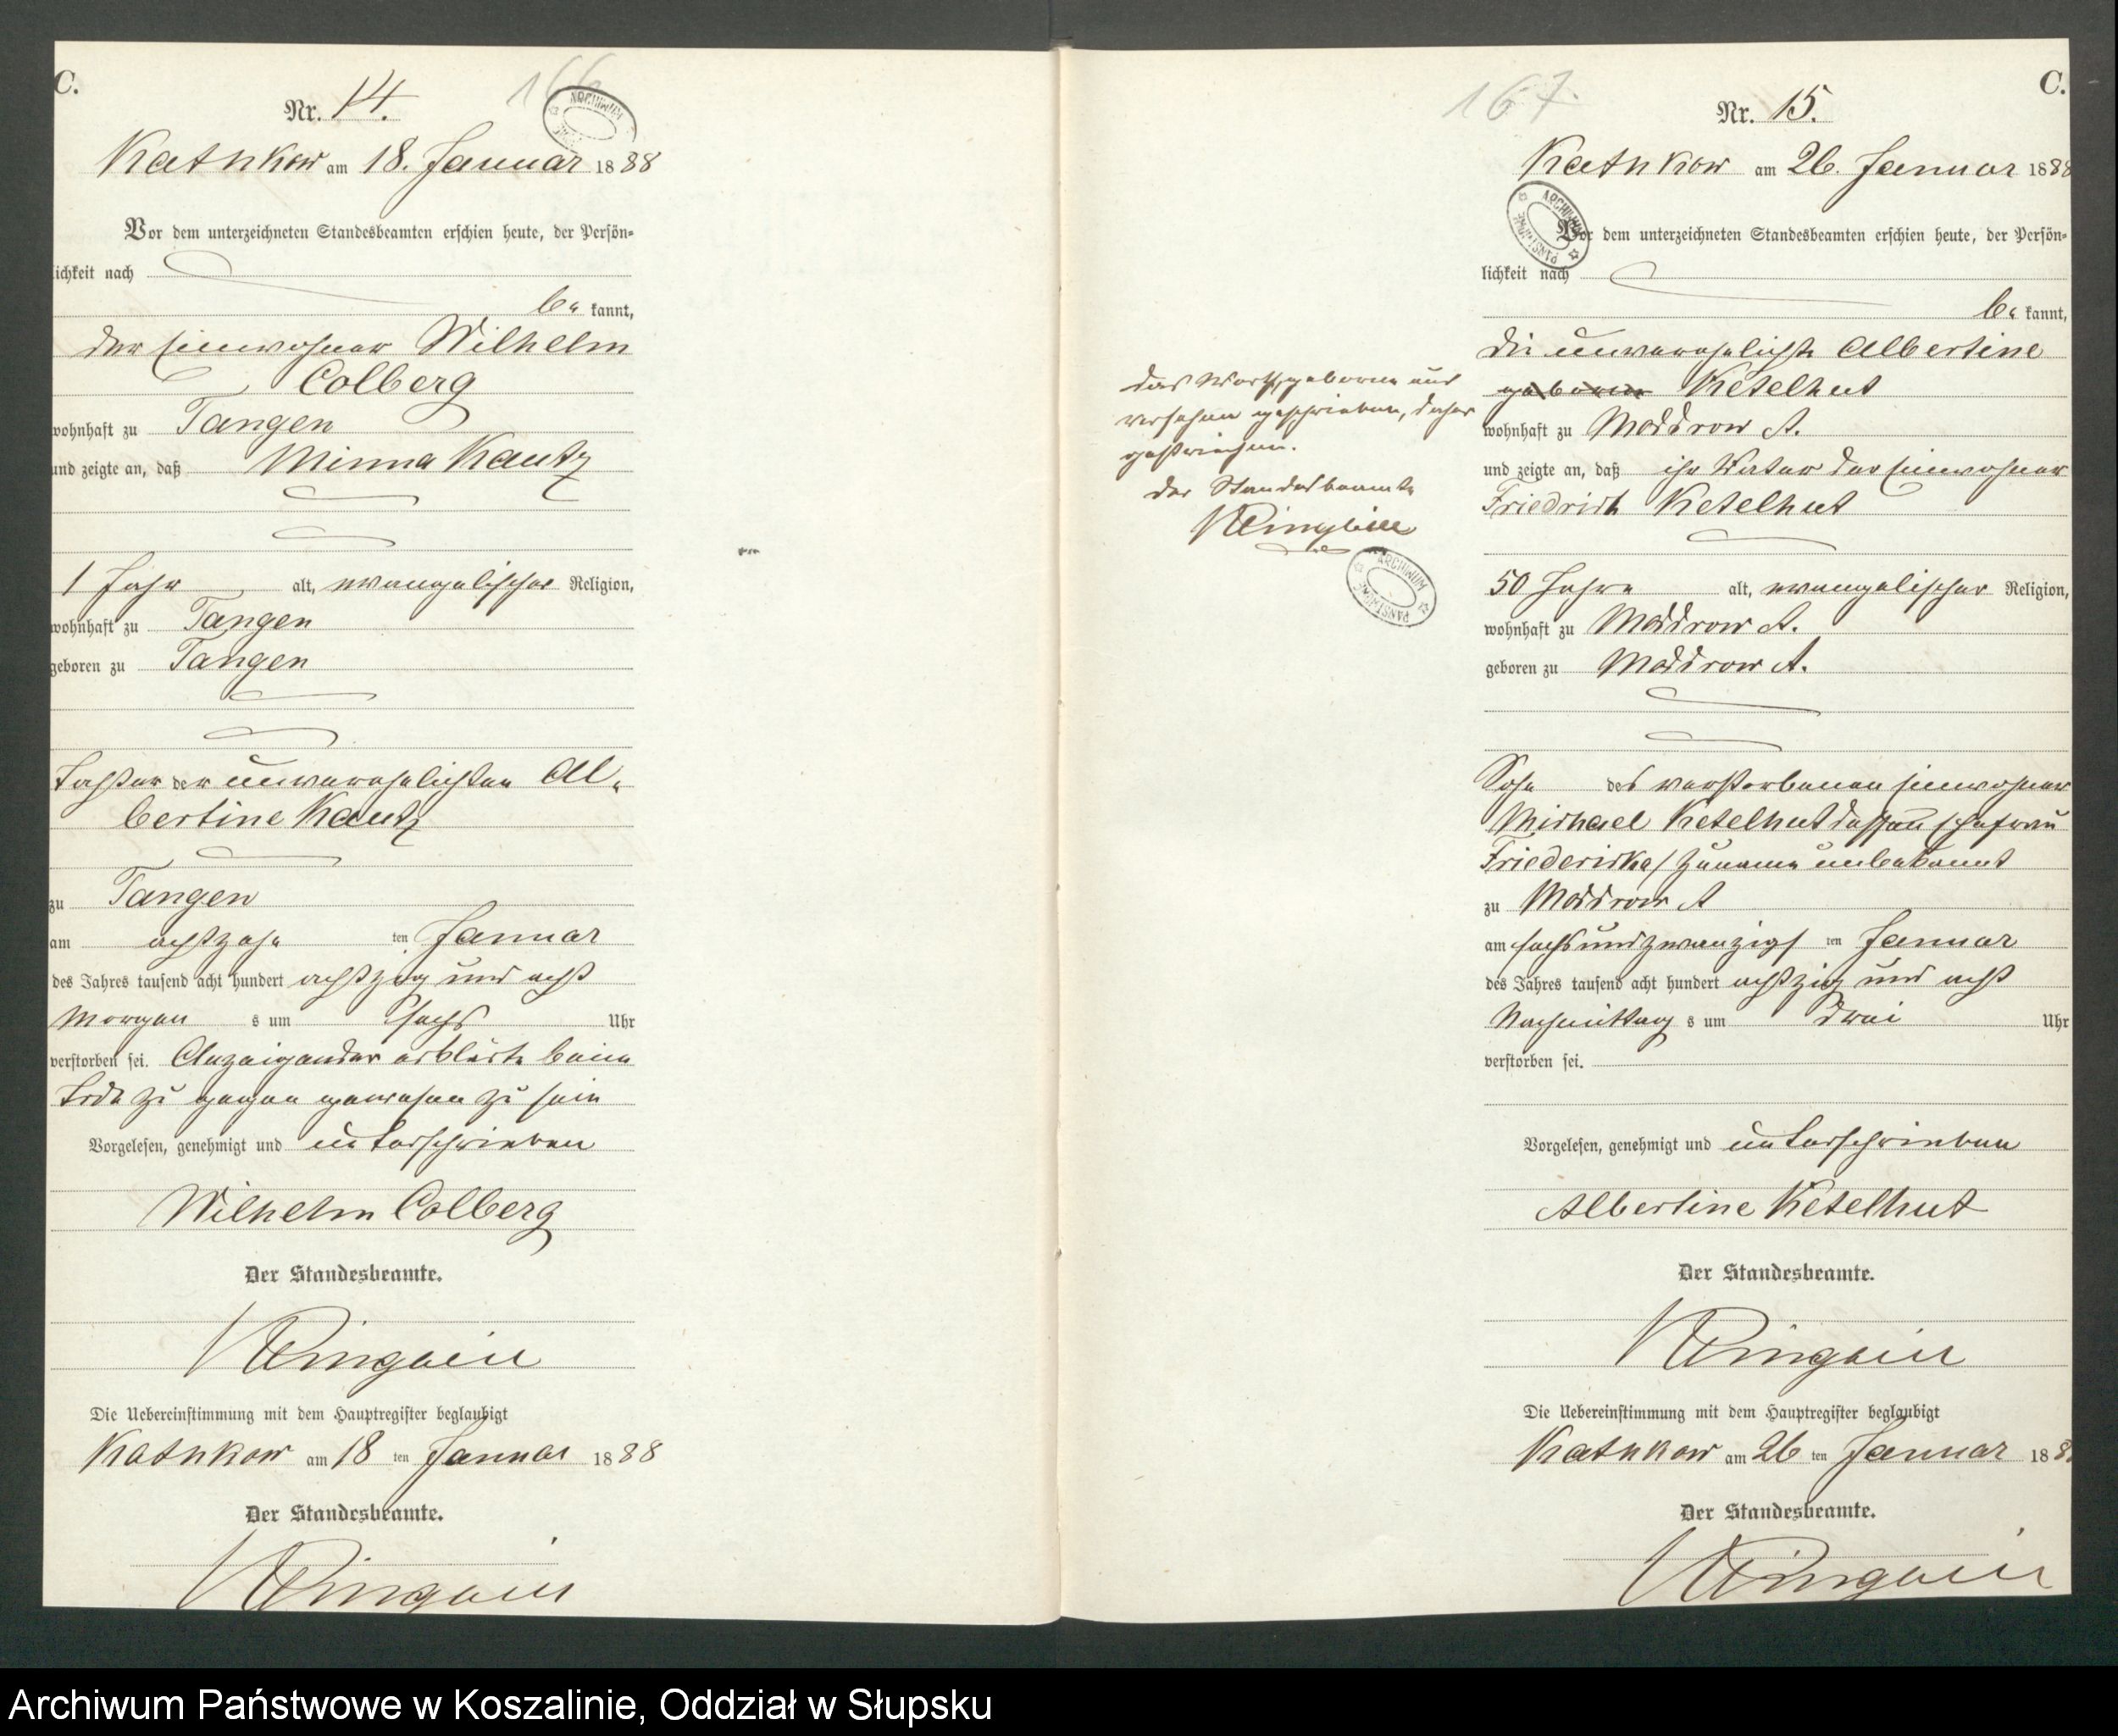 C.
Nr. 14.
166
ARCHIWUM
Katkow am 18. Januar 1888
Vor dem unterzeichneten Standesbeamten erschien heute, der Persön-
lichkeit nach
be kannt,
der Einwohner Wilhelm
Colberg
wohnhaft zu Tangen
und zeigte an, daß Minna Kautz
1 Jahr alt, evangelischer Religion,
wohnhaft zu Tangen
geboren zu Tangen
Tochter der unverehelichten Al-
bertine Kautz
zu Tangen
am achtzehn ten Januar
des Jahres tausend acht hundert achtzig und acht
Morgen s um sechs Uhr
verstorben sei. Anzeigender erklärte beim
Tode zu gegen gewesen zu sein
Vorgelesen, genehmigt und unterschrieben
Wilhelm Colberg
Der Standesbeamte.
Die Uebereinstimmung mit dem Hauptregister beglaubigt
Katkow am 18 ten Januar 1888
Der Standesbeamte.
C.
167.
Nr. 15.
Katkow am 26. Januar 1888
ARCHIWUM PAŃSTWOWE
Vor dem unterzeichneten Standesbeamten erschien heute, der Persön-
lichkeit nach
be kannt,
die unverehelichte Albertine
geborne Ketelhut
wohnhaft zu Moddrow A.
und zeigte an, daß ihr Vater der Einwohner
Friedrich Ketelhut
50 Jahre alt, evangelischer Religion,
wohnhaft zu Moddrow A.
geboren zu Moddrow A.
Sohn des verstorbenen Einwohner
Michael Ketelhut dessen Ehefrau
Friedericke / Zuname unbekannt
zu Moddrow A
am sechsundzwanzigs ten Januar
des Jahres tausend acht hundert achtzig und acht
Nachmittag s um drei Uhr
verstorben sei.
Vorgelesen, genehmigt und unterschrieben
Albertine Ketelhut
Der Standesbeamte.
Die Uebereinstimmung mit dem Hauptregister beglaubigt
Katkow am 26 ten Januar 188
Der Standesbeamte.
das Wort geborne aus
versehen geschrieben, daher
gestrichen.
der Standesbeamte
ARCHIWUM PAŃSTWOWE
Archiwum Państwowe w Koszalinie, Oddział w Słupsku